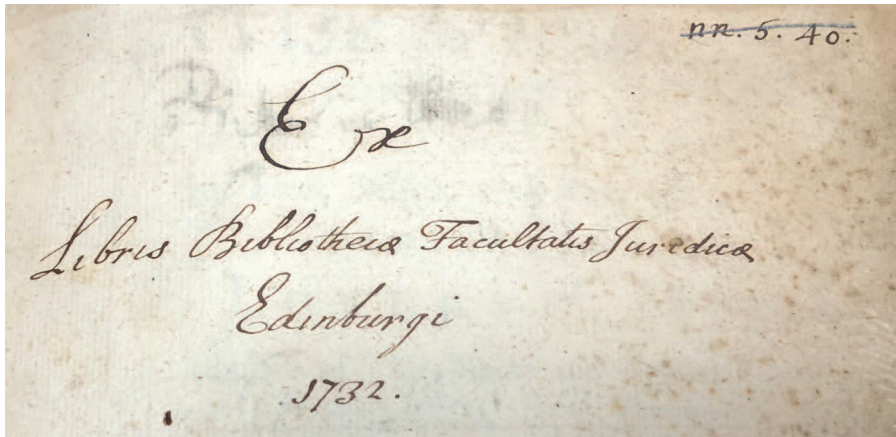 nn. 5. 40.
Ex
Libris Bibliothecæ Facultatis Juridicæ
Edinburgi
1732.